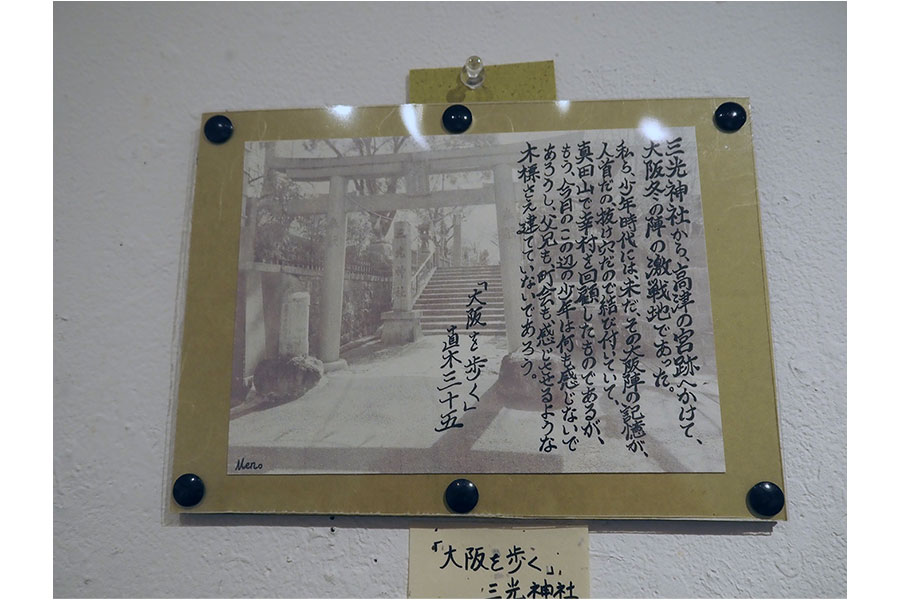 三光神社から、高津の宮跡へかけて、
大阪冬の陣の激戦地であった。
私ら、少年時代には、未だ、その大阪陣の記憶が、
人首だの抜け穴だので結び付いていて、
真田山で幸村を回顧したものであるが、
もう、今日のこの辺の少年は何も感じないで
あろうし、父兄も、町会も感じさせるような
木標さえ建てていないであろう。
「大阪を歩く」
直木三十五
Meno
「大阪を歩く」、
三光神社